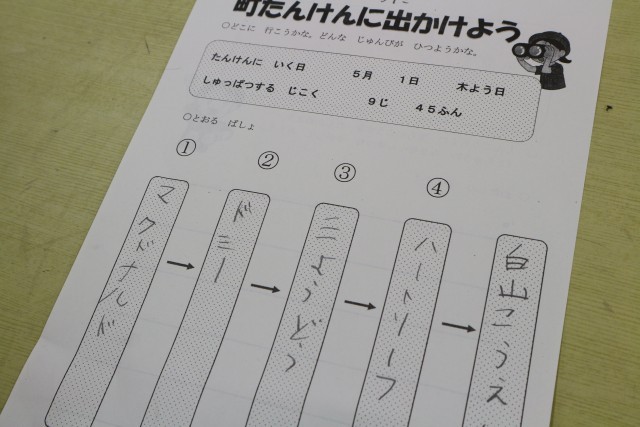 町たんけんに出かけよう
○どこに 行こうかな。どんな じゅんびが ひつようかな。
たんけんに いく日 5月 1日 木よう日
しゅっぱつする じこく 9じ 45ふん
○とおる ばしょ
① ② ③ ④
マクドナルド
ドミー
三ようどう
ハートリーフ
白山こうえ